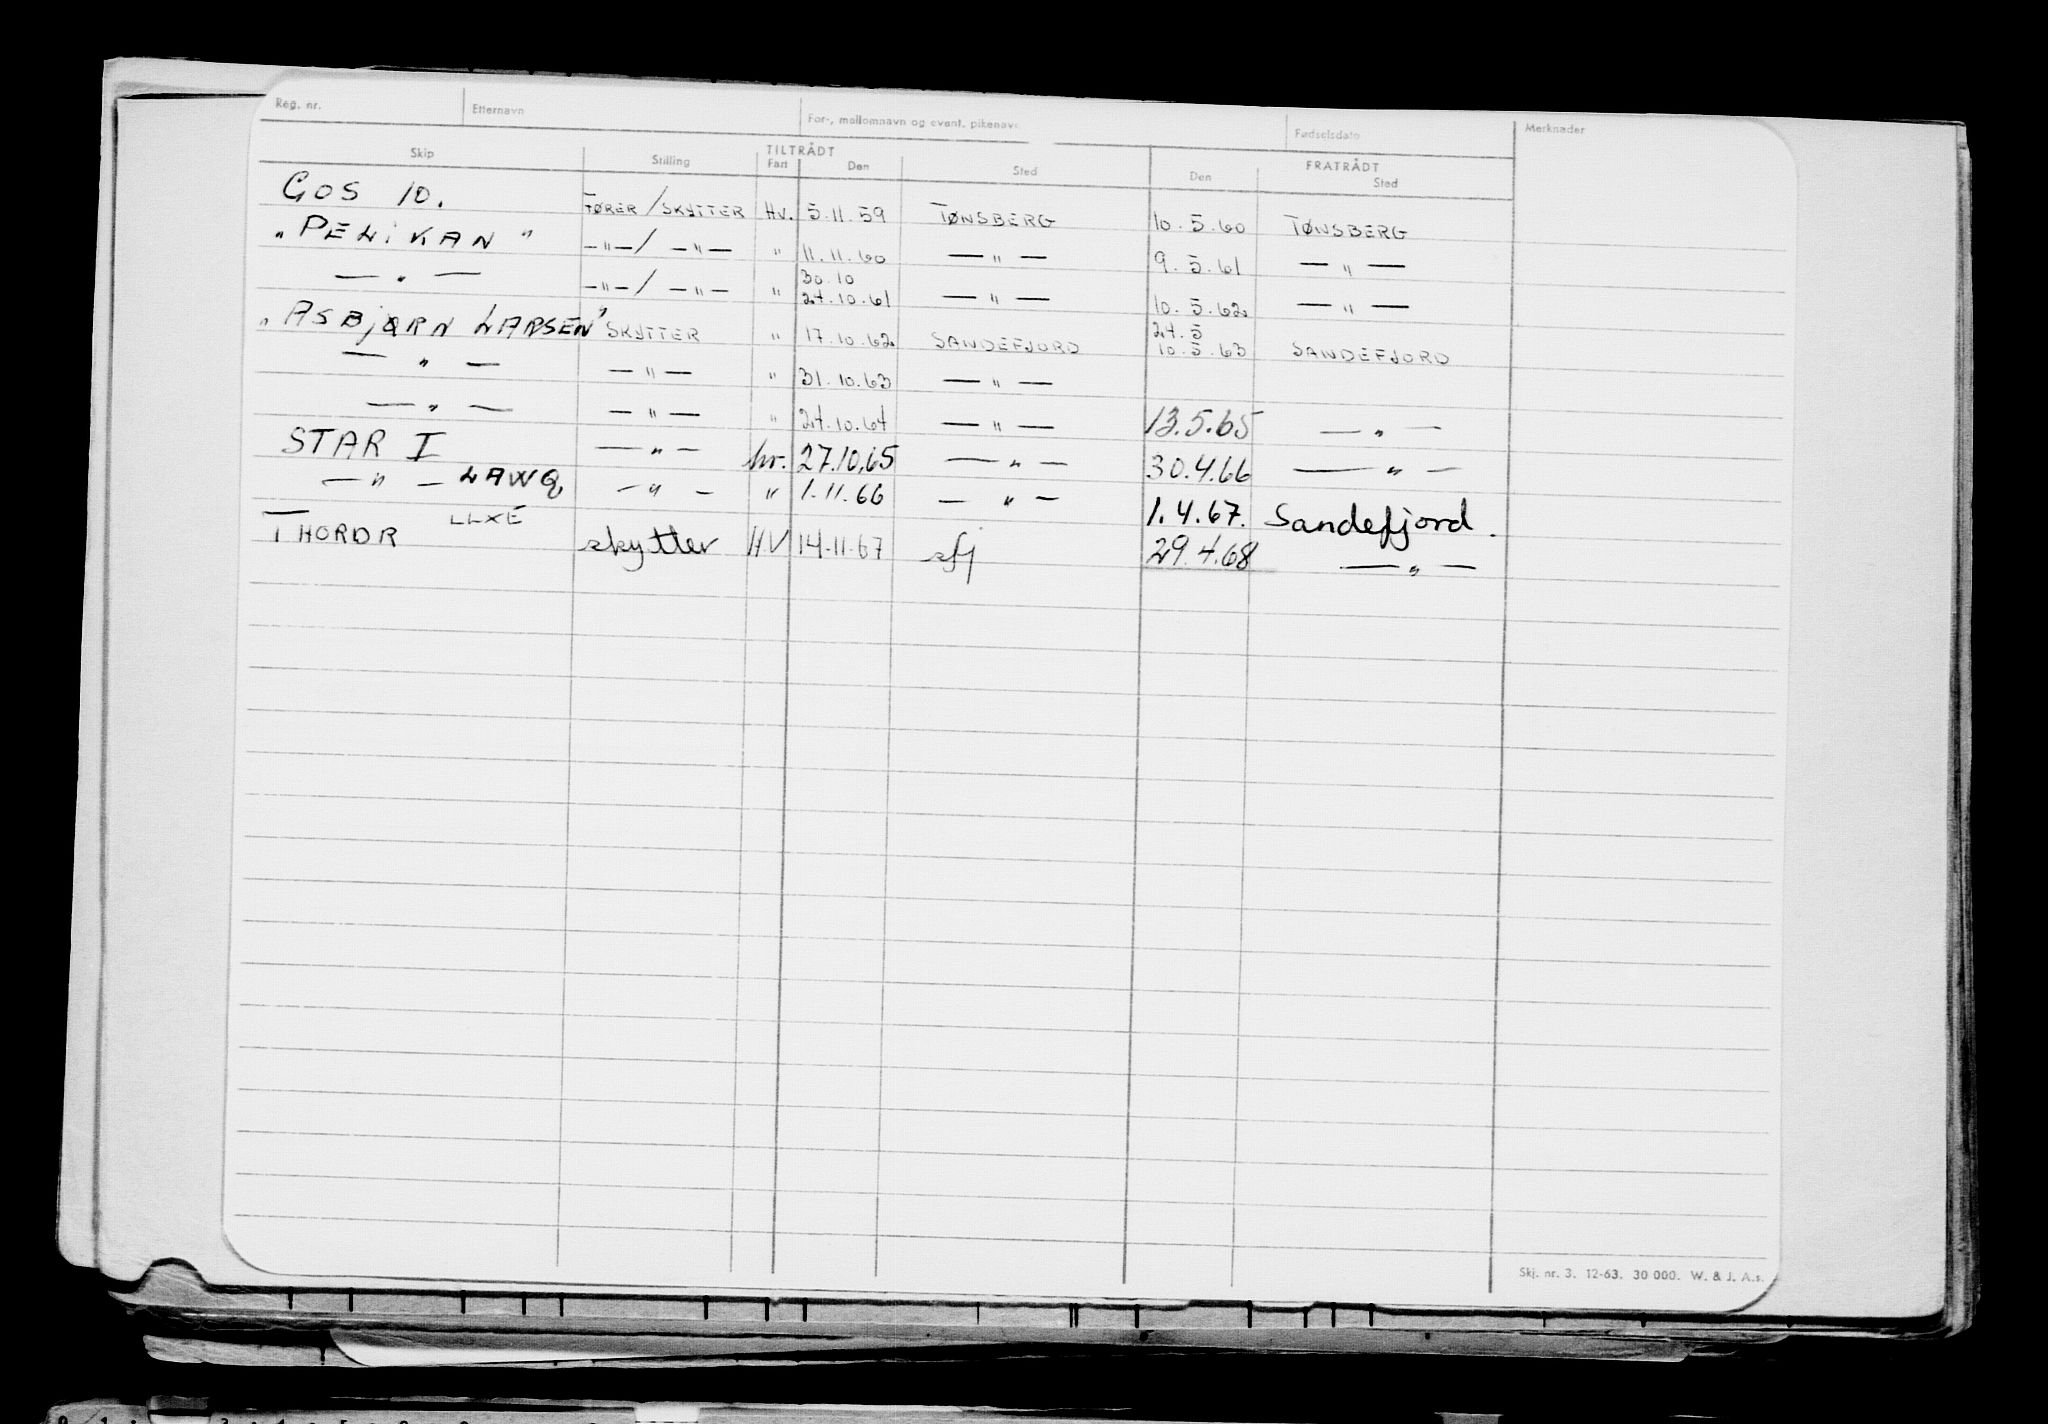 Reg. nr. Etternavn For-, mellomnavn og event. pikenavn Fødselsdato Merknader
Skip Stilling TILTRÅDT Fart Den Sted FRATRÅDT Den Sted
GOS 10. FØRER / SKYTTER Hv. 5.11.59 TØNSBERG 10.5.60 TØNSBERG
"PELIKAN" —"—/ —"— " 11.11.60 — " — 9.5.61 — " —
— " — —"—/ —"— " 30.10 24.10.61 — " — 10.5.62 — " —
"ASBJØRN LARSEN" SKYTTER " 17.10.62 SANDEFJORD 24.5 10.5.63 SANDEFJORD
— " — — " — " 31.10.63 — " —
— " — — " — " 24.10.64 — " — 13.5.65 — " —
STAR I — " — hv. 27.10.65 — " — 30.4.66 — " —
— " — LAWQ — " — " 1.11.66 — " — 1.4.67. Sandefjord.
THORDR LLXE skytter HV 14.11.67 sfj 29.4.68 — " —
Skj. nr. 3. 12-63. 30 000. W. & J. A.s.